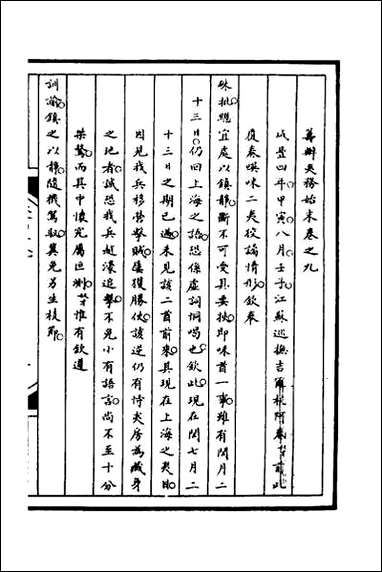 籌辦夷務始末卷之九
咸豐四年甲寅八月壬子江蘇巡撫吉爾杭阿奏竊前此
復奏㗎咪二夷狡譎情形欽奉
硃批總宜處以鎮靜斷不可受其要挾即咪酋一事雖有閏月二
十三日仍回上海之語恐係虛詞恫喝也欽此現在閏七月二
十三日之期已過未見該二酋前來其現在上海之夷目
因見我兵移營擊賊屢獲勝仗該逆仍有恃夷房為藏身
之地者誠恐我兵越濠追擊不免小有語言尚不至十分
桀驁而其中懷究屬叵測
惟有欽遵
訓諭鎮之以靜隨機駕馭冀免另生枝節